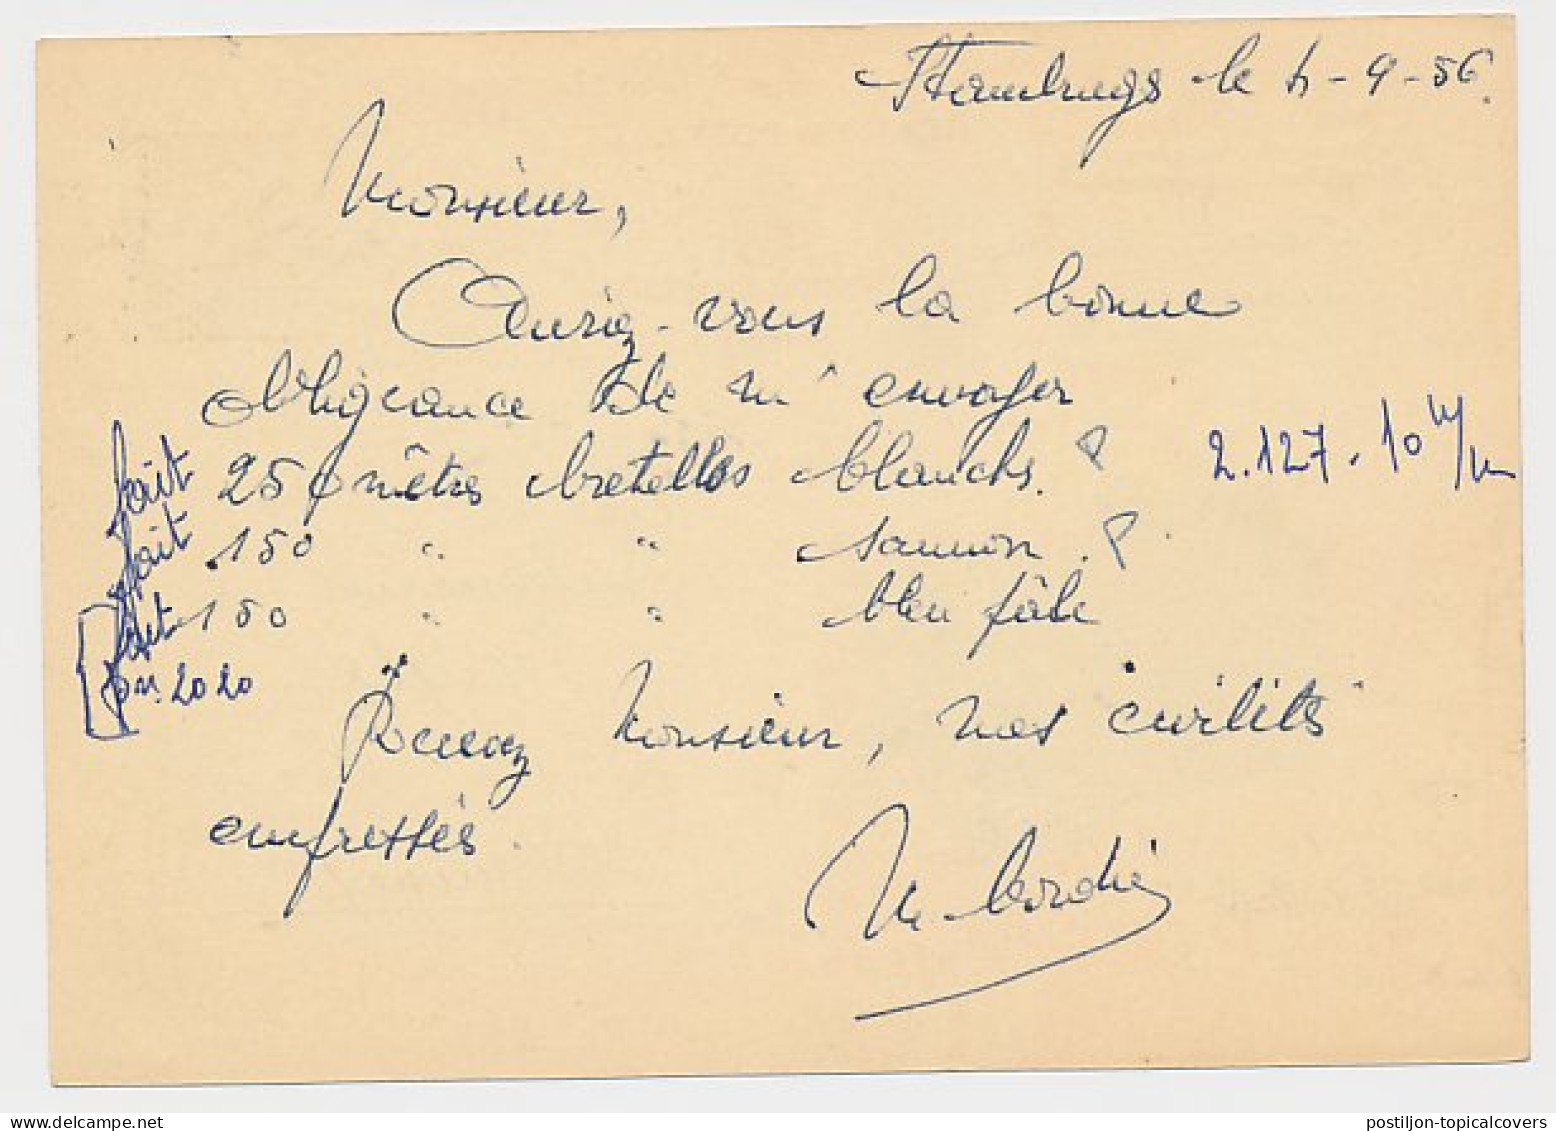 Stambruges le 4-9-56.
Monsieur,
Auriez-vous la bonne
obligeance de m'envoyer
fait 250 mètres bretelles blanches. 2.127.10 m/m
fait 150 " " saumon.
fait 150 " " bleu pâle
2020
Recevez Monsieur, mes civilités
empressés.